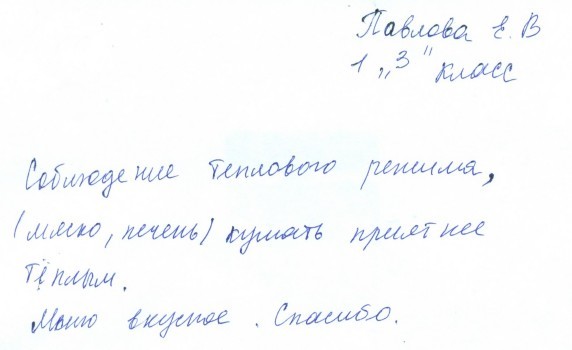 Павлова Е. В
1 „З" класс
Соблюдение теплового режима,
(мясо, печень) кушать приятнее
тёплым.
Меню вкусное. Спасибо.